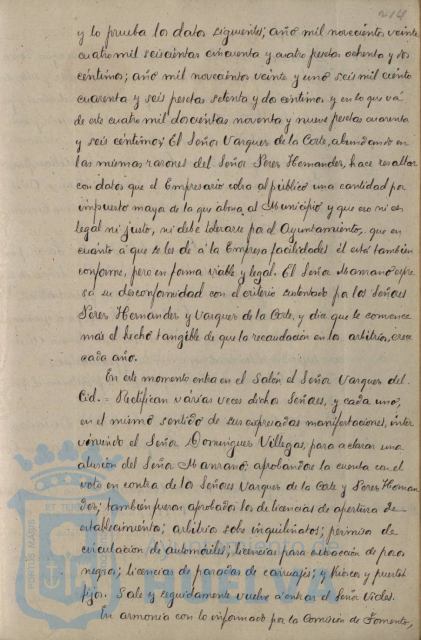 214
y lo prueba los datos siguientes; año mil novecientos veinte
cuatro mil seiscientas cincuenta y cuatro pesetas ochenta y dos
céntimos; año mil novecientos veinte y uno seis mil ciento
cuarenta y seis pesetas setenta y do céntimos y en lo que vá
de este cuatro mil doscientas noventa y nueve pesetas cuarenta
y seis céntimos; El Señor Vazquez de la Corte, abundando en
las mismas razones del Señor Perez Hernandez, hace resaltar
con datos que el Empresario cobra al público una cantidad por
impuesto mayor de la que abona al Municipio y que eso ni es
legal ni justo, ni debe tolerarse por el Ayuntamiento, que en
cuanto á que se les dé á la Empresa facilidades él está también
conforme, pero en forma viable y legal. El Señor Manzano expre
sa su desconformidad con el criterio sustentado por los Señores
Perez Hernandez y Vazquez de la Corte, y dice que le convence
más el hecho tangible de que la recaudación en los arbitrios, crece
cada año.
En este momento entra en el Salón el Señor Vazquez del
Cid. = Rectifican várias veces dichos Señores, y cada uno,
en el mismo sentido de sus expresadas manifestaciones, inter
viniendo el Señor Dominguez Villegas, para aclarar una
alusión del Señor Manzano; aprobandose la cuenta con el
voto en contra de los Señores Vazquez de la Corte y Perez Hernan
dez; también fueron aprobadas las de licencias de apertura de
establecimientos; arbitrio sobre inquilinatos; permisos de
circulación de automóviles; licencias para extracción de pozos
negros; licencias de paradas de carruajes; y Kioscos y puestos
fijos. Sale y seguidamente vuelve a entrar el Señor Vides.
En armonía con lo informado por la Comisión de Fomento,
PORTUS MARIS
ET TERRÆ